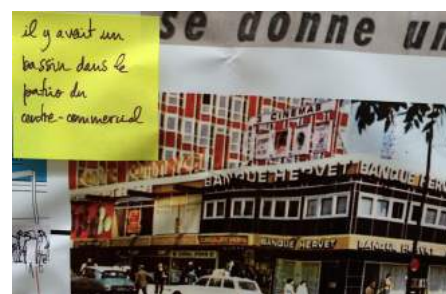 il y avait un
bassin dans le
patio du
centre-commercial
se donne un
3 CINEMAS
BANQUE HERVET BANQUE HER
BANQUE HERVET
BANQUE HERVET